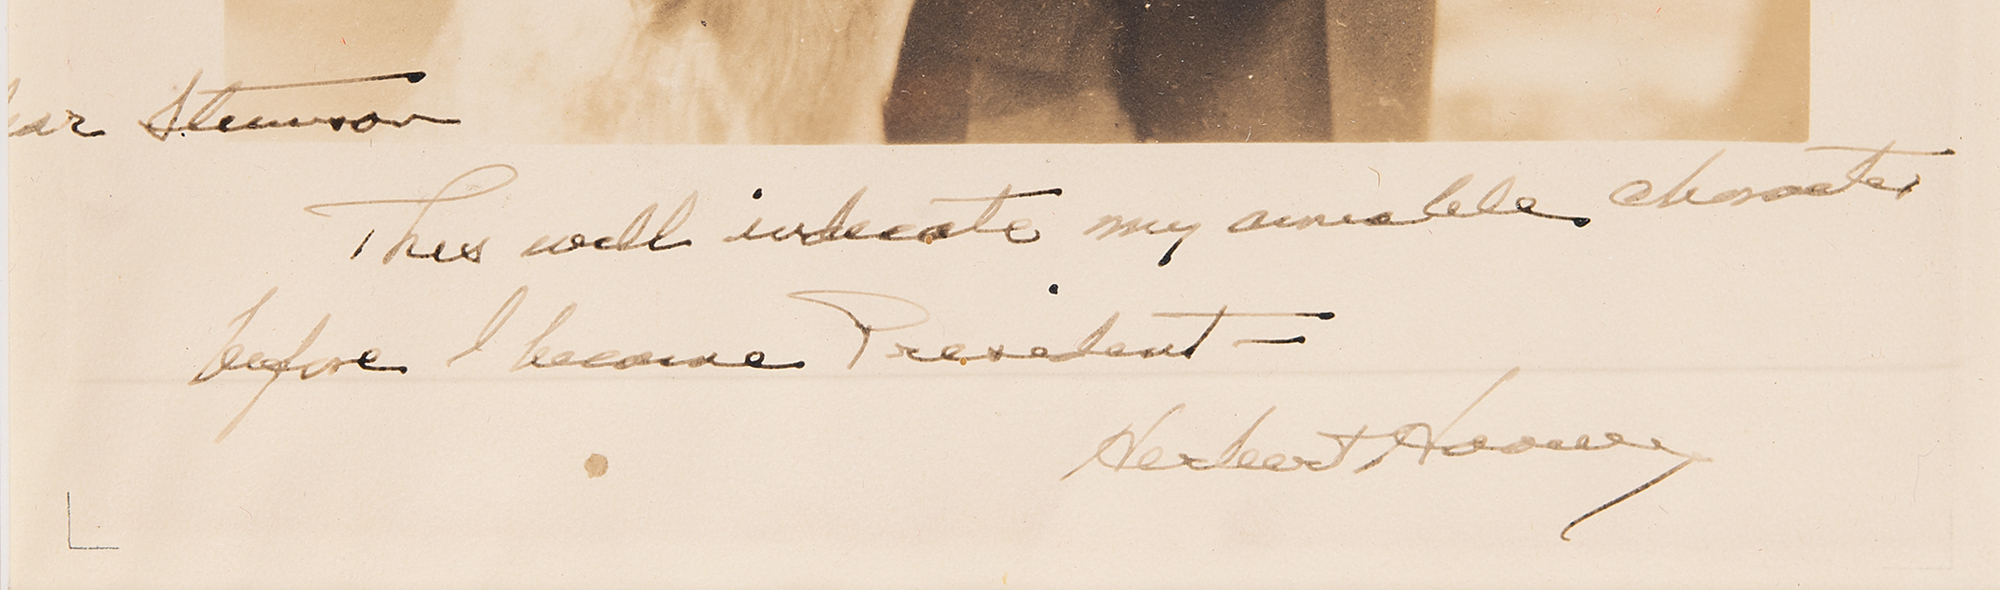 ear Stimson
This will indicate my amiable character
before I became President =
Herbert Hoover